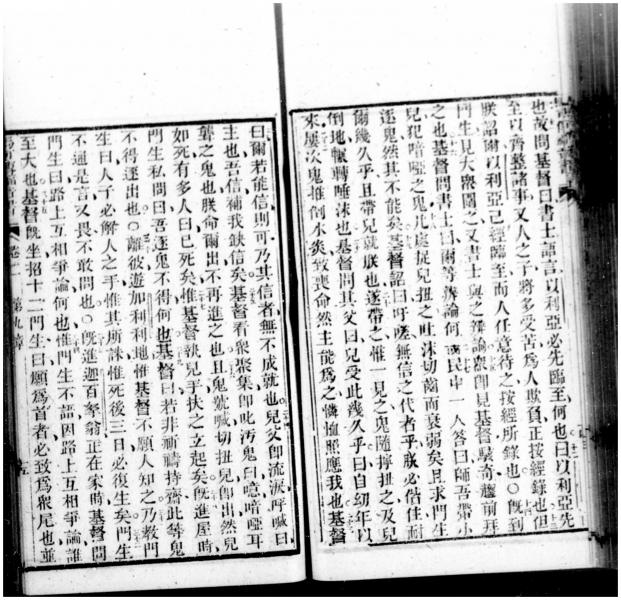 也故問基督曰書士語言以利亞必先臨至何也曰以利亞先
至以齊整諸事又人之子將多受苦爲人欺負正按經錄也但
朕詔爾以利亞已經臨至而人任意待之按經所錄也○旣到
門生見大衆圍之又書士與之辯論衆卽見基督駭奇趨前拜
之也基督問書士曰爾等辨論何 民中一人答曰師吾帶小
兒犯喑啞之鬼凡處捉兒扭之吐沫切齒而衰弱矣且求門生
逐鬼然其不能矣基督詔曰呼嗟無信之代者乎朕必偕住耐
爾幾久乎且帶兒就朕也遂帶之惟一見之鬼隨擰扭之及兒
倒地輾轉唾沫也基督問其父曰兒受此幾久乎曰自幼年以
來屢次鬼推倒水炎致喪命然主能爲之憐恤照應我也基督
曰爾若能信則可乃其信者無不成就也兒父卽流淚呼喊曰
主也吾信補我缺信矣基督看衆聚集卽叱汚鬼曰噫喑啞耳
聾之鬼也朕命爾出不再進之也且鬼號喊切扭兒卽出然兒
如死有多人曰已死矣惟基督執兒手扶之立起矣旣進屋時
門生私問曰吾逐鬼不得何也基督曰若非祈禱持齋此等鬼
不得逐出也○離彼遊加利利地惟基督不願人知之乃教門
生曰人子必解人之手惟其所誅惟死後三日必復生矣門生
不通是言又畏不敢問也○旣進迦百拏翁正在家時基督問
門生曰路上互相爭論何也惟門生不語因路上互相爭論誰
至大也基督旣坐招十二門生曰願爲首者必致爲衆尾也並
第九章